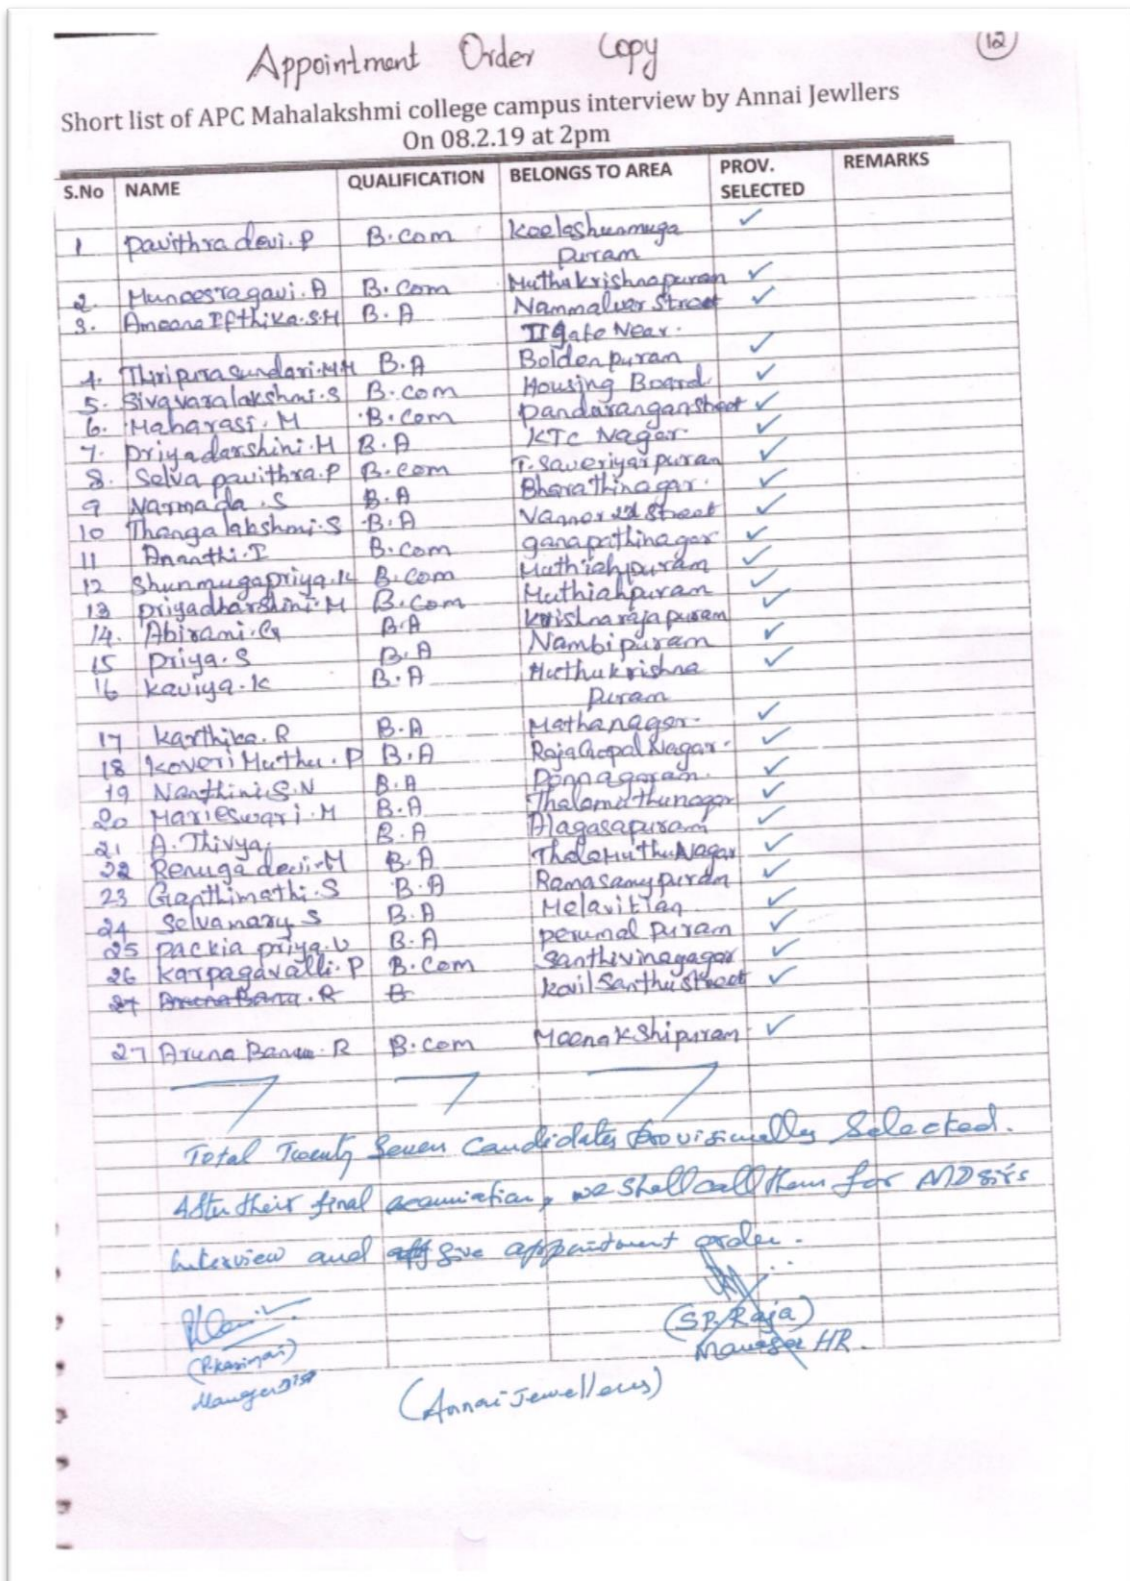 Appointment Order Copy
12
Short list of APC Mahalakshmi college campus interview by Annai Jewllers
On 08.2.19 at 2pm
S.No NAME QUALIFICATION BELONGS TO AREA PROV. SELECTED REMARKS
1 Pavithra devi.P B.Com Keelashunmuga ✓
Puram
2. Muneesragavi.A B.Com Muthukrishnapuram ✓
3. Ameena Ifthika.S.H B.A Nammalver Street ✓
II gate Near.
4. Thiripurasundari.MM B.A Boldenpuram ✓
5. Sivavaralakshmi.S B.Com Housing Board ✓
6. Maharasi.M B.Com Pandaranganstreet ✓
7. Priyadarshini.M B.A KTC Nagar. ✓
8. Selva pavithra.P B.Com T.Saveriyarpuram ✓
9 Narmada.S B.A Bharathinagar. ✓
10 Thangalakshmi.S B.A Street ✓
11 Ananthi.I B.Com ganapathinagar ✓
12 Shunmugapriya.K B.Com Muthiahpuram ✓
13 Priyadharshini.M B.Com Muthiahpuram ✓
14. Abirami.G B.A Krishnarajapuram ✓
15 Priya.S B.A Nambipuram ✓
16 Kaviya.K B.A Muthukrishna ✓
Puram
17 Karthika.R B.A Mathanagar. ✓
18 Koveri Muthu.P B.A RajaGopal Nagar. ✓
19 Nanthini.S.N B.A Ponnagaram. ✓
20 Marieswari.M B.A Thalamuthunagar ✓
21 A.Thivya B.A Alagasapuram ✓
22 Renuga devi.M B.A ThalaMuthuNagar ✓
23 Ganthimathi.S B.A Ramasamypuram ✓
24 Selvanary S B.A Melavittan ✓
25 Packia priya.U B.A Perumal Puram ✓
26 Karpagavalli.P B.Com Santhivinagagar ✓
27 Aruna Banu.R B Kovil Santhu Street ✓
27 Aruna Banu.R B.com Meenakshipuram ✓
Total Twenty Seven Candidates Provisionally Selected.
After their final , we shall call them for MD sir's
Interview and give appointment order.
(S.P. Raja)
Manager HR.
Manager
(Annai Jewellers)